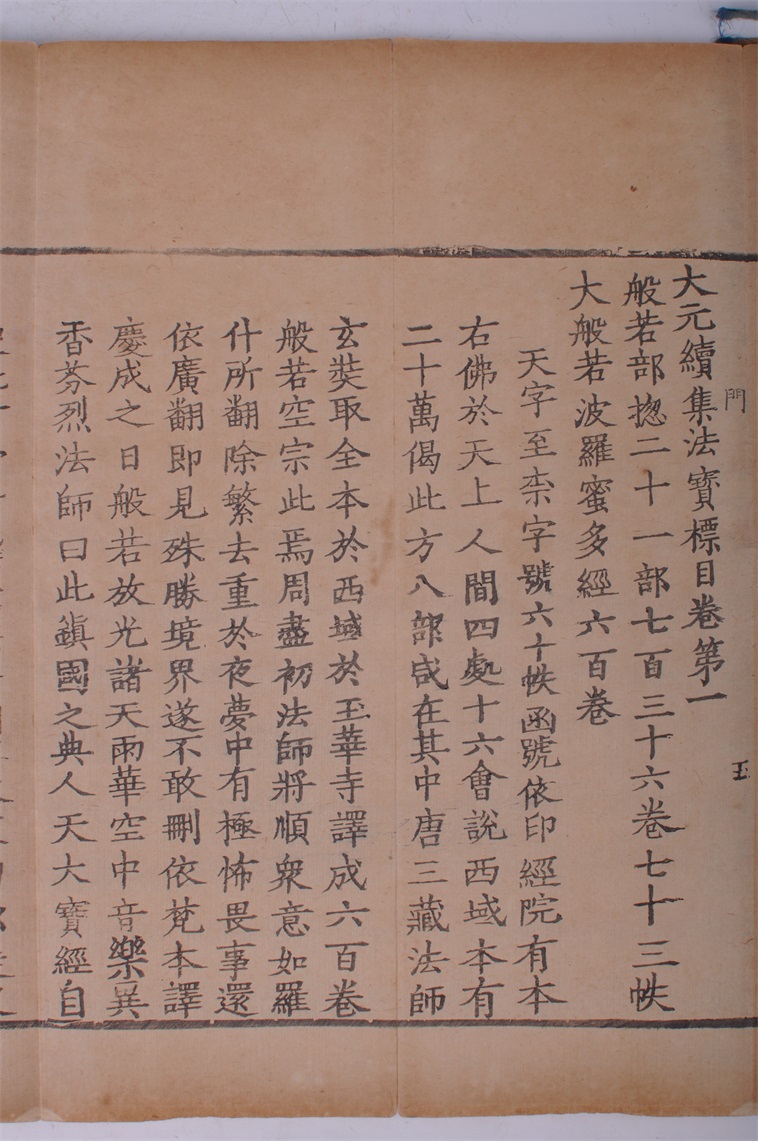 大元續集法寶標目卷第一
門
玉
般若部揔二十一部七百三十六卷七十三帙
大般若波羅蜜多經六百卷
天字至柰字號六十帙函號依印經院有本
右佛於天上人間四處十六會說西域本有
二十萬偈此方八部咸在其中唐三藏法師
玄奘取全本於西域於玉華寺譯成六百卷
般若空宗此焉周盡初法師將順衆意如羅
什所翻除繁去重於夜夢中有極怖畏事還
依廣翻即見殊勝境界遂不敢刪依梵本譯
慶成之日般若放光諸天雨華空中音樂異
香芬烈法師曰此鎭國之典人天大寶經自